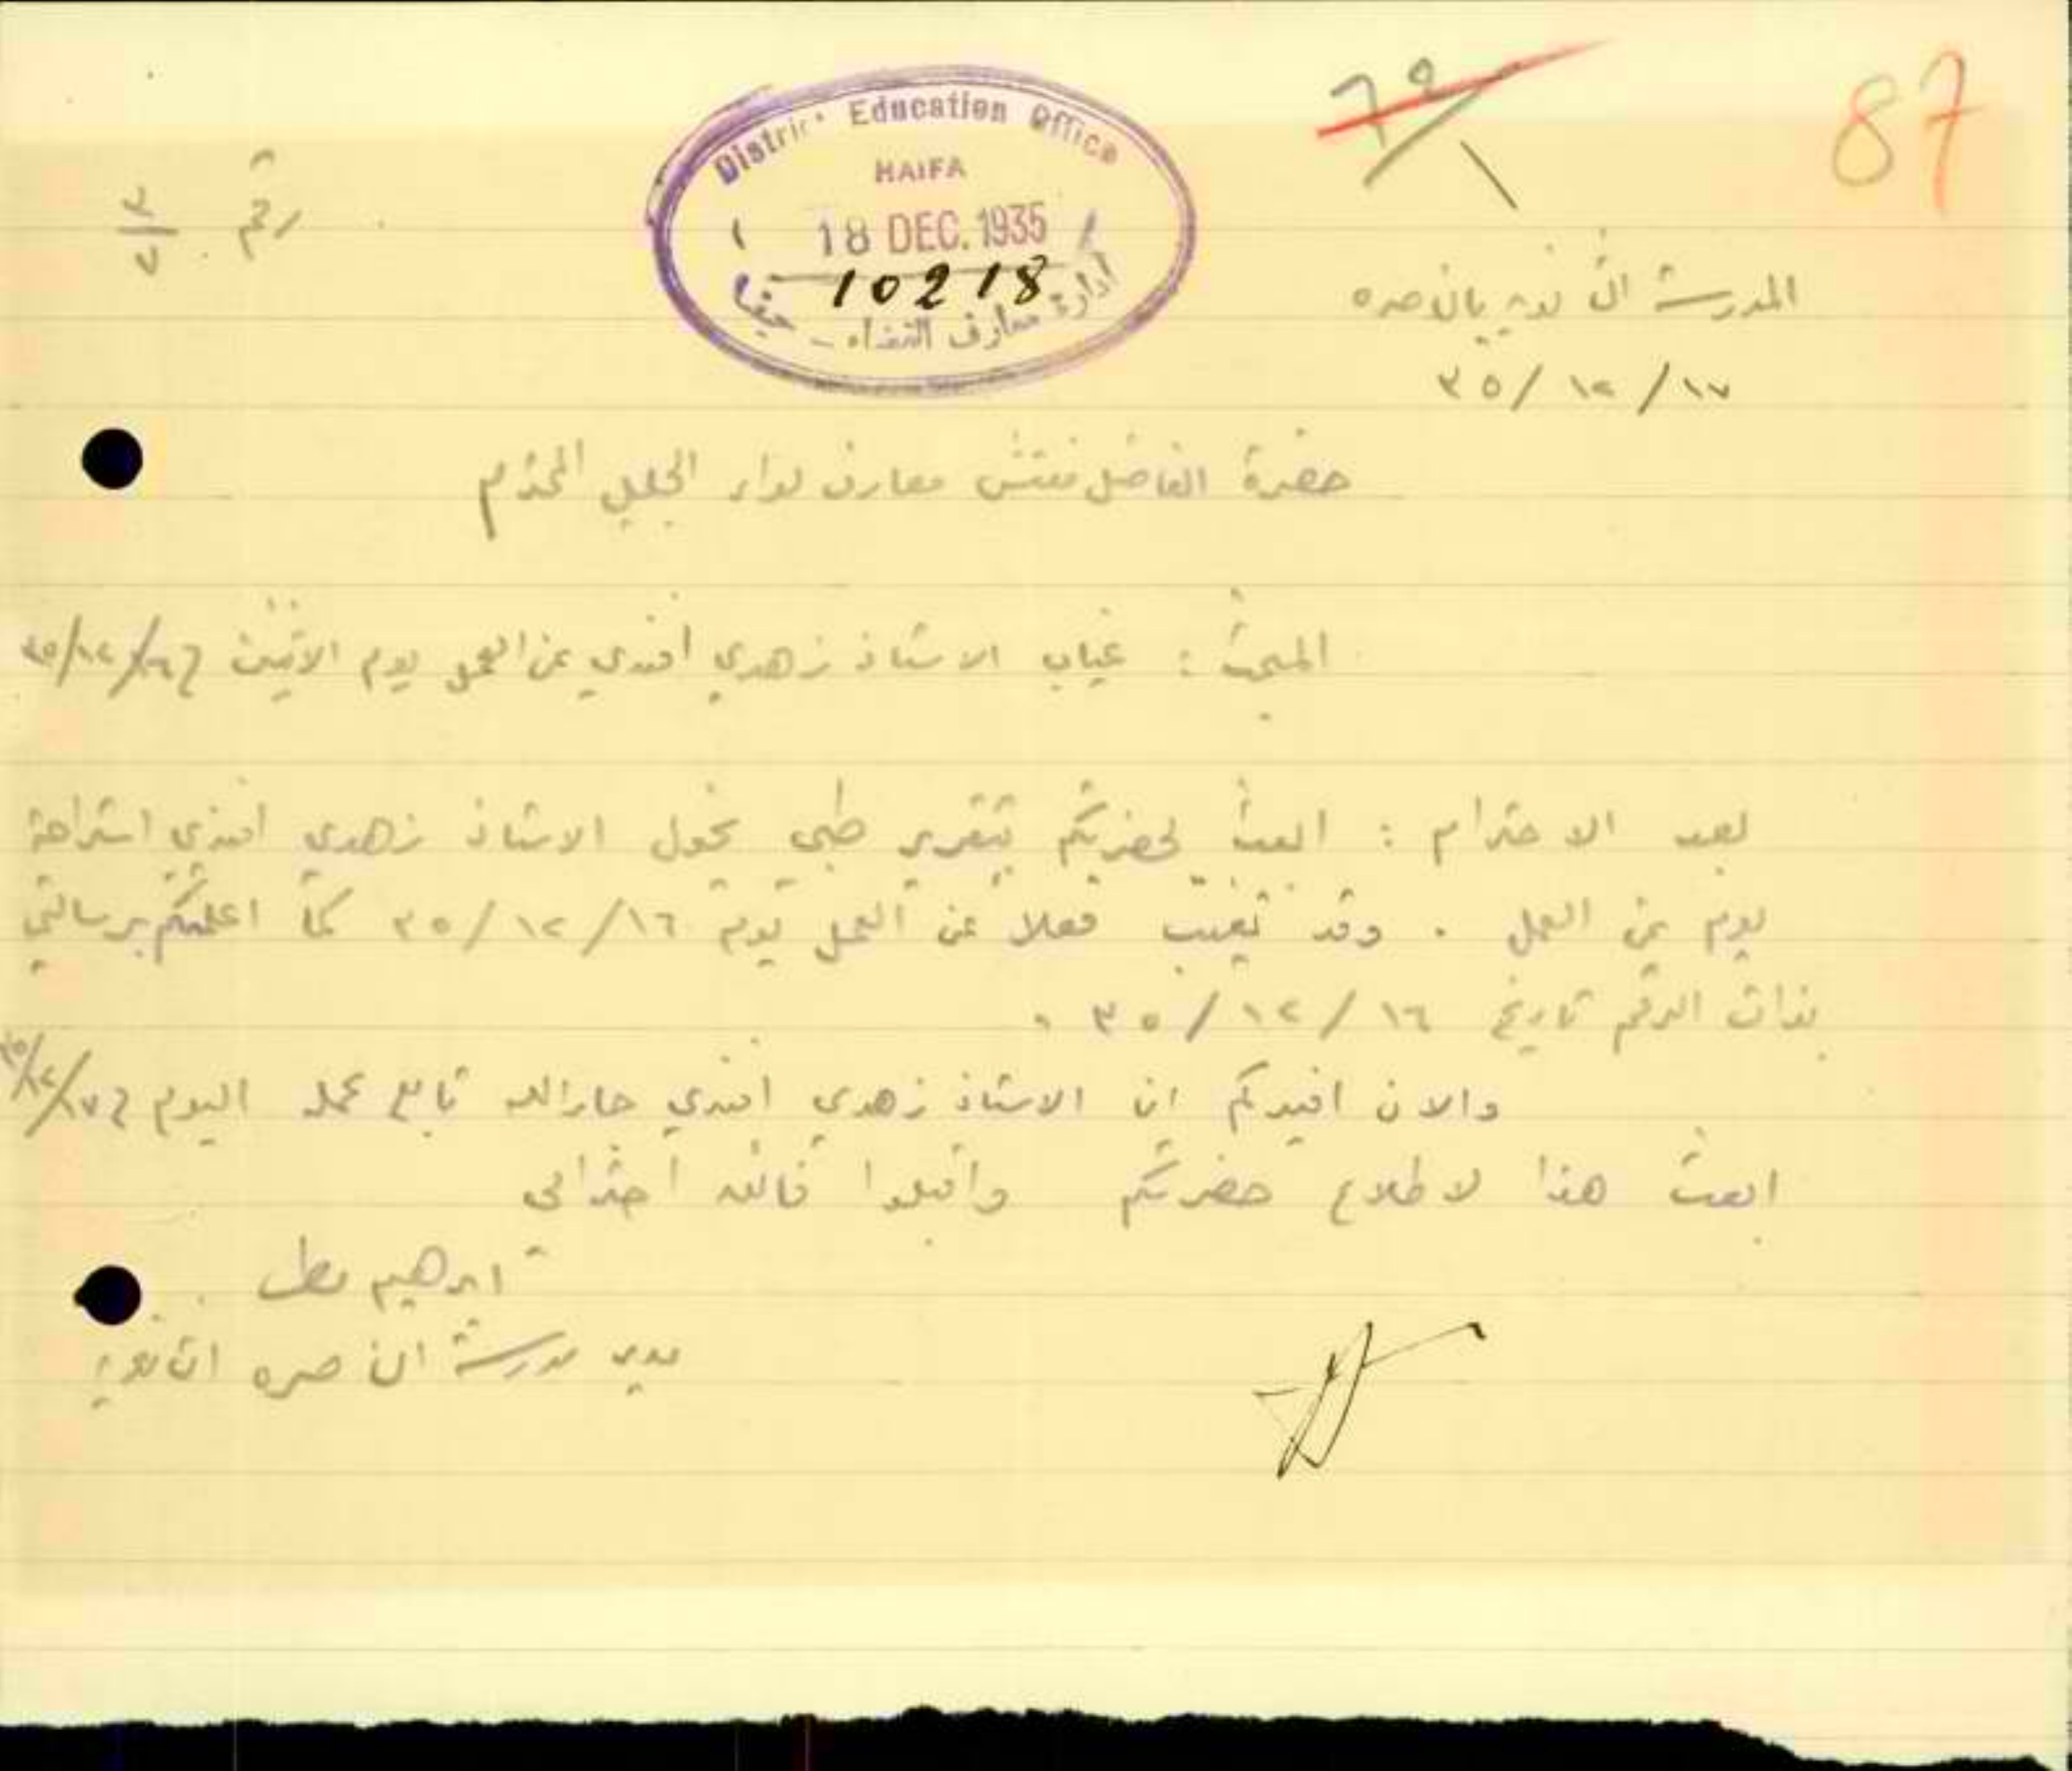 87
District Education Office
HAIFA
18 DEC. 1935
10218
ادارة معارف القضاء - حيفا
رقم ٣/٧
المدرسة الثانوية بالناصره
١٧/ ١٢ /٣٥
حضرة الفاضل مفتش معارف لواء الجليل المحترم
المبحث : غياب الاستاذ زهدي افندي عن العمل يوم الاثنين في ١٦/١٢/٣٥
بعد الاحترام : ابعث لحضرتكم بتقرير طبي يخول الاستاذ زهدي افندي استراحة
يوم عن العمل . وقد تغيب فعلا عن العمل يوم ١٦/ ١٢/ ٣٥ كما اعلمتكم برسالتي
بذات الرقم تاريخ ١٦ /١٢/ ٣٥ .
والان افيدكم ان الاستاذ زهدي افندي جارالله تابع عمله اليوم في ١٧/١٢/٣٥
ابعث هذا لاطلاع حضرتكم واقبلوا فائق احترامي
ابرهيم مطر
مدير مدرسة الناصره الثانوية